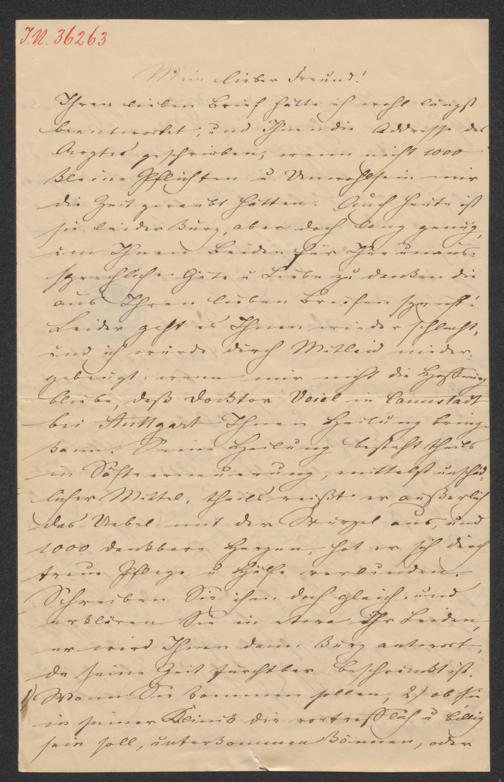 J.N. 36263
Mein lieber Freund!
Ihren lieben Brief hätte ich wohl längst
beantwortet, und Ihnen die Addresse des
Arztes geschrieben, wenn nicht 1000
kleine Pflichten u Unwohlsein mir
die Zeit geraubt hätten. Auch heute ist
sie leider kurz, aber doch lang genug,
um Ihnen Beiden für Ihre unaus-
sprechliche Güte u Liebe zu danken die
aus Ihren lieben Briefen spricht!
Leider geht es Ihnen wieder schlecht,
und ich würde durch Mitleid nieder
gebeugt, wenn mir nicht die Hoffnung
bliebe daß Docktor Veiel in Cannstadt
bei Stuttgart Ihnen Heilung bringen
kann. Seine Heilung besteht theils
in Säfteerneuerung, mittelst unschäd-
licher Mittel, theils reißt er äußerlich
das Uebel mit der Wurzel aus, und
1000 dankbare Herzen, hat er sich durch
treue Pflege u Hülfe verbunden.
Schreiben Sie ihm doch gleich, und
erklären Sie in Ihr Leiden,
er wird Ihnen dann kurz antworten,
da seine Zeit furchtbar beschränkt ist.
1) Wann Sie kommen sollen, 2) ob Sie
in seiner Klinik die vortrefflich u billig
sein soll, unterkommen können, oder